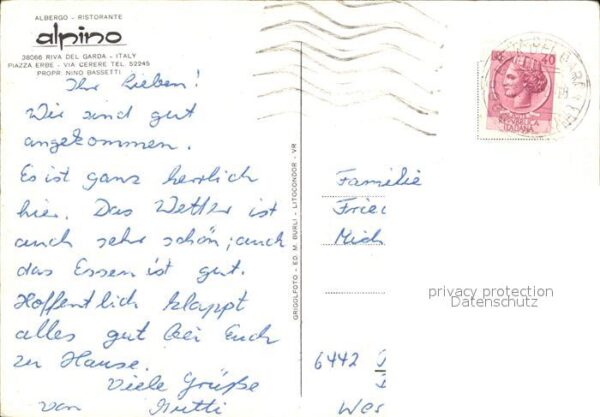 ALBERGO - RISTORANTE
alpino
38066 RIVA DEL GARDA - ITALY
PIAZZA ERBE - VIA CERERE TEL. 52245
PROPR. NINO BASSETTI
Ihr Lieben!
Wir sind gut
angekommen.
Es ist ganz herrlich
hier. Das Wetter ist
auch sehr schön; auch
das Essen ist gut.
Hoffentlich klappt
alles gut bei Euch
zu Hause.
Viele Grüße
von Mutti
GRIGOLFOTO - ED. M. BURLI - LITOCONDOR - VR
40
REPUBBLICA
ITALIANA
Familie
Fried
Mich
privacy protection
Datenschutz
6442
Wes